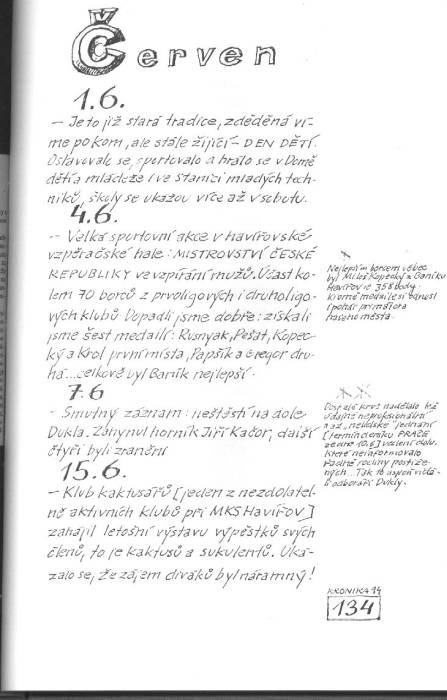 Červen
1.6.
– Je to již stará tradice, zděděná ví-
me po kom, ale stále žijící – DEN DĚTÍ.
Oslavovalo se, sportovalo a hrálo se v Domě
dětí a mládeže i ve Stanici mladých tech-
niků, školy se ukážou více až v sobotu.
4.6.
-- Velká sportovní akce v havířovské
vzpěračské hale: MISTROVSTVÍ ČESKÉ
REPUBLIKY ve vzpírání mužů. Účast ko-
lem 70 borců z prvoligových i druholigo-
vých klubů. Dopadli jsme dobře: získali
jsme šest medailí: Rusnyak, Pešat, Kopec-
ký a Krol první místa, Papšík a Gregor dru-
há... celkově byl Baník nejlepší.
7.6
- Smutný záznam: neštěstí na dole
Dukla. Zahynul horník Jiří Kačor, další
čtyři byli zraněni
15.6.
– Klub kaktusářů [jeden z nezdolatel-
ně aktivních klubů při MKS Havířov]
zahájil letošní výstavu výpěstků svých
členů, to je kaktusů a sukulentů. Uká-
zalo se, že zájem diváků byl náramný!
x
Nejlepším borcem vůbec
byl Miloš Kopecký z Baníku
Havířov se 358 body.
Kromě medaile si odnesl
i pohár primátora
našeho města.
xx
Dost zlé krve nadělalo též
údajně neprofesionální
a až „nelidské“ jednání
[termín deníku PRÁCE
ze dne 10.6] vedení dolu,
které neinformovalo
řádně rodiny postiže-
ných... Tak to aspoň vidě-
li odboráři Dukly.
KRONIKA 94
134